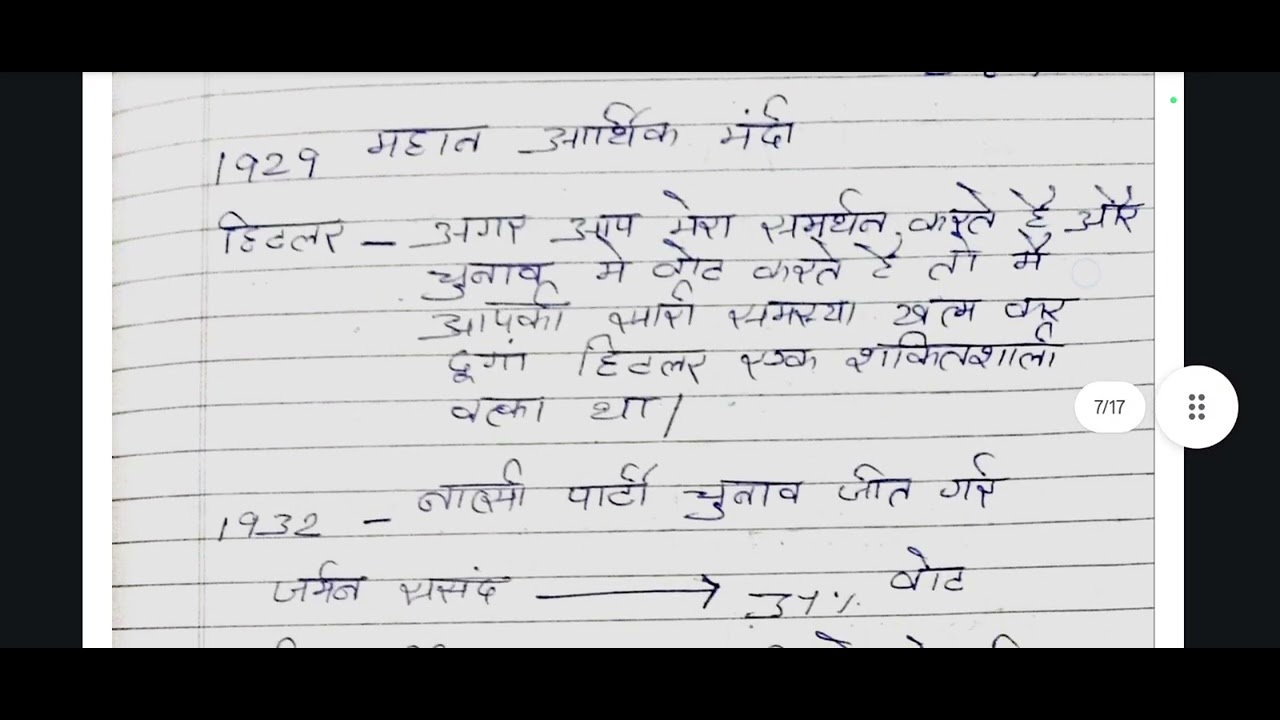 1929 महान आर्थिक मंदी
हिटलर – अगर आप मेरा समर्थन करते है और
चुनाव मे वोट करते है तो मै
आपकी सारी समस्या खत्म कर
दूगां हिटलर एक शक्तिशाली
वक्ता था।
1932 – नात्सी पार्टी चुनाव जीत गई
जर्मन ससंद → 37% वोट
7/17